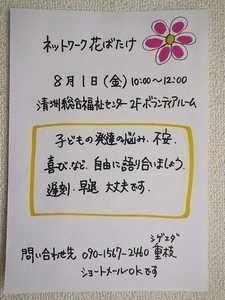 ネットワーク花ばたけ
8月1日(金)10:00〜12:00
清洲総合福祉センター2Fボランティアルーム
子どもの発達の悩み、不安、
喜び、など、自由に語り合いましょう。
遅刻・早退 大丈夫です。
シゲエダ
問い合わせ先 090-1567-2460 重枝
ショートメールOKです